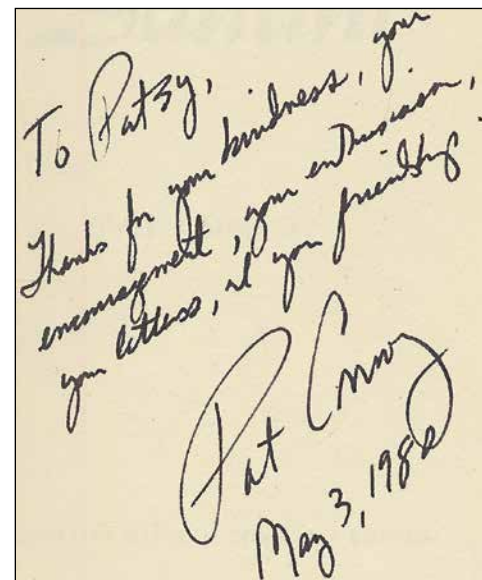 To Patsy,
Thanks for your kindness, your
encouragement, your enthusiasm,
your letters, & your friendship.
Pat Conroy
May 3, 1982